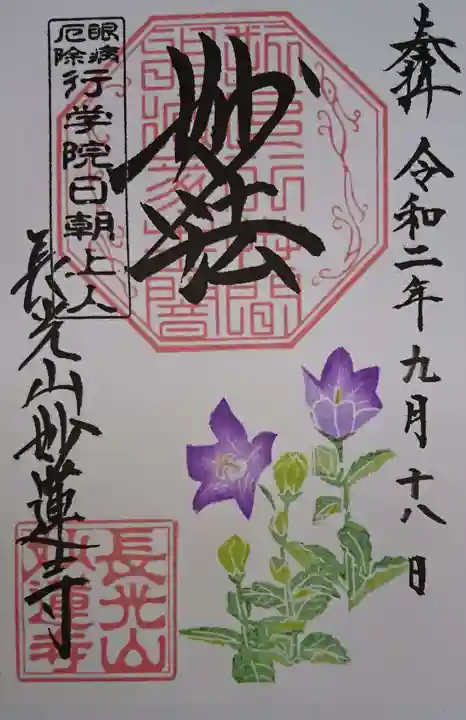 奉拝 令和二年九月十八日
妙法
眼病
厄除
行学院日朝上人
長光山妙蓮寺
長光山
妙蓮寺